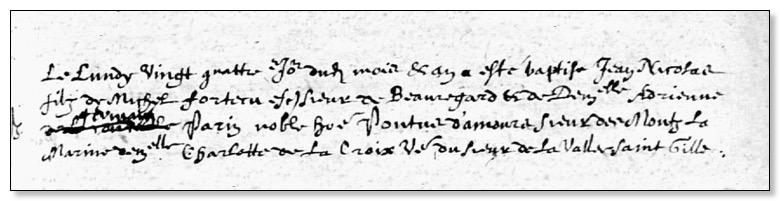 Le Lundy vingt quattre jor dud mois & an a esté baptisé Jean Nicolas
filz de Michel Fortecu esc sieur de Beauregard & de Demelle Adrienne
de parin noble hoe Pontus d'amours sieur des Montz La
Marine demelle Charlotte de La Croix Ve du sieur de La Valler saint Gille.